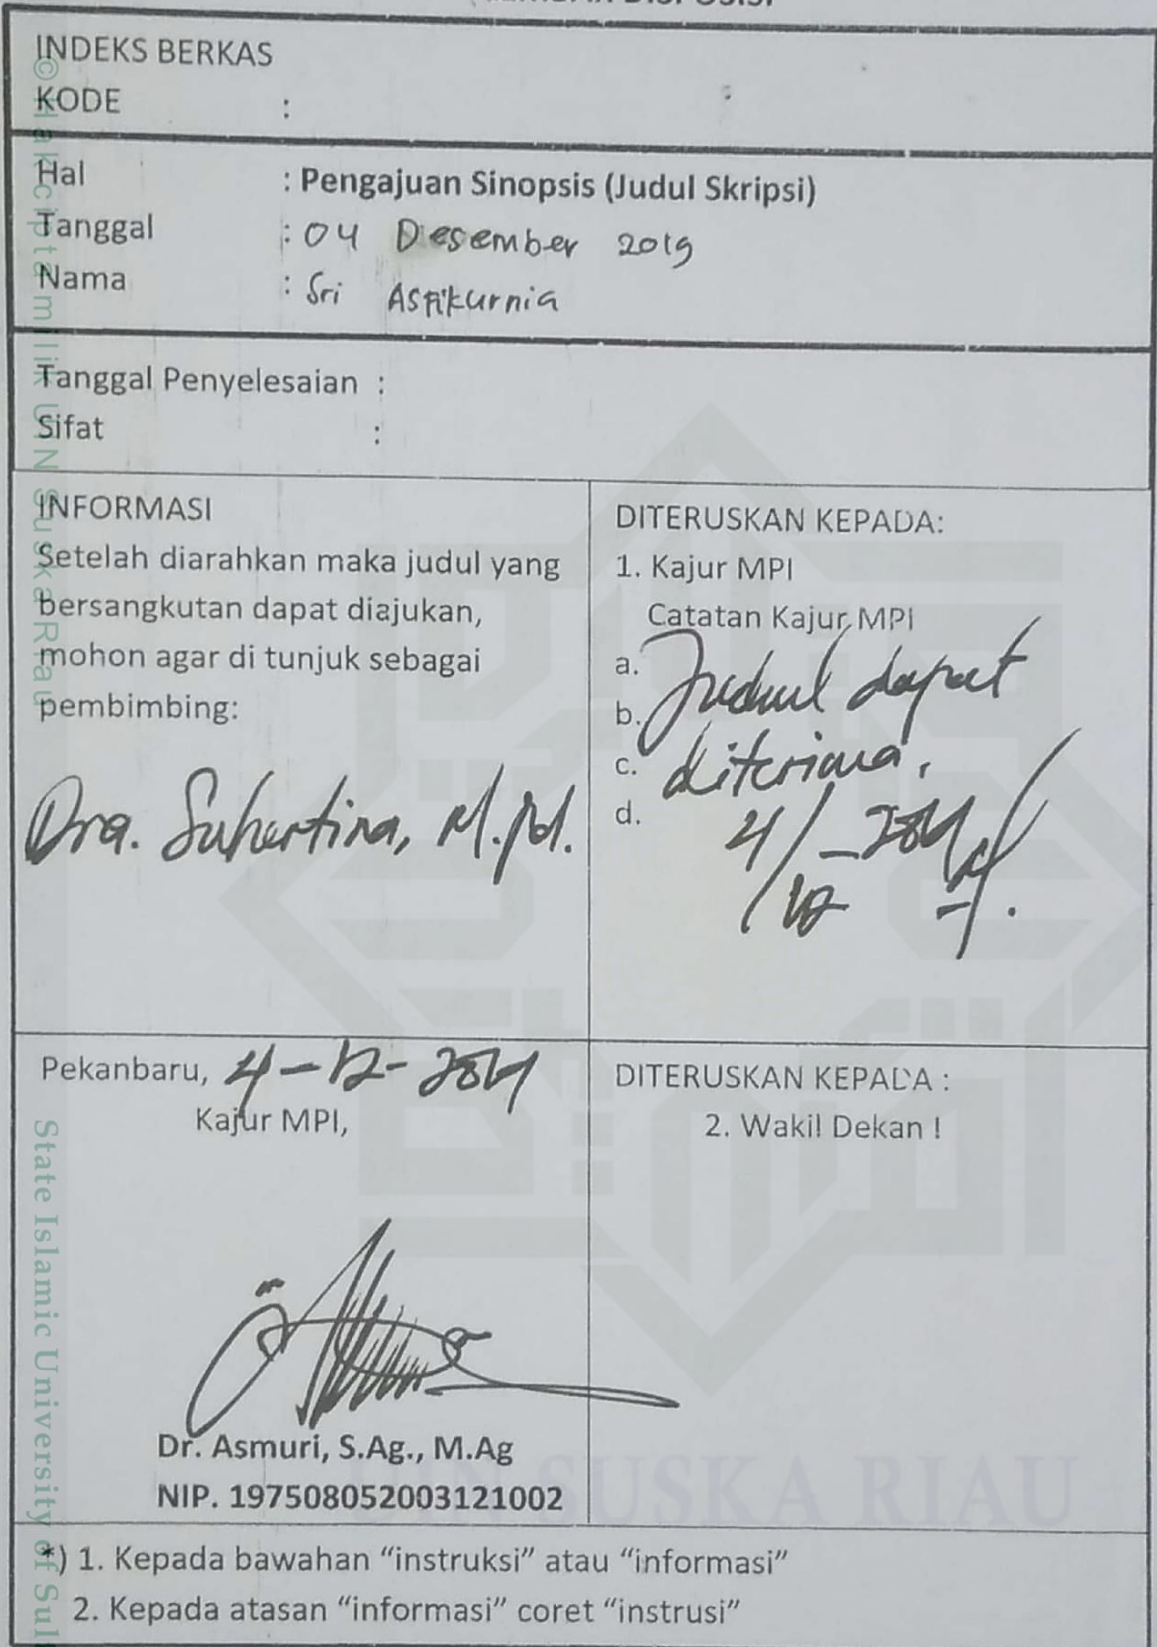 INDEKS BERKAS
KODE :
:
Hal : Pengajuan Sinopsis (Judul Skripsi)
Tanggal : 04 Desember 2019
Nama : Sri Astikurnia
Tanggal Penyelesaian :
Sifat :
INFORMASI
Setelah diarahkan maka judul yang
bersangkutan dapat diajukan,
mohon agar di tunjuk sebagai
pembimbing:
Dra. Suhertina, M.Pd.
DITERUSKAN KEPADA:
1. Kajur MPI
Catatan Kajur MPI
a. Judul dapat
b.
c. diterima.
d. 4/12 -
Pekanbaru, 4-12-
Kajur MPI,
Dr. Asmuri, S.Ag., M.Ag
NIP. 197508052003121002
DITERUSKAN KEPADA :
2. Wakil Dekan !
*) 1. Kepada bawahan “instruksi” atau “informasi”
2. Kepada atasan “informasi” coret “instrusi”
© Hak cipta milik UIN Suska Riau
State Islamic University of Sul
UIN SUSKA RIAU